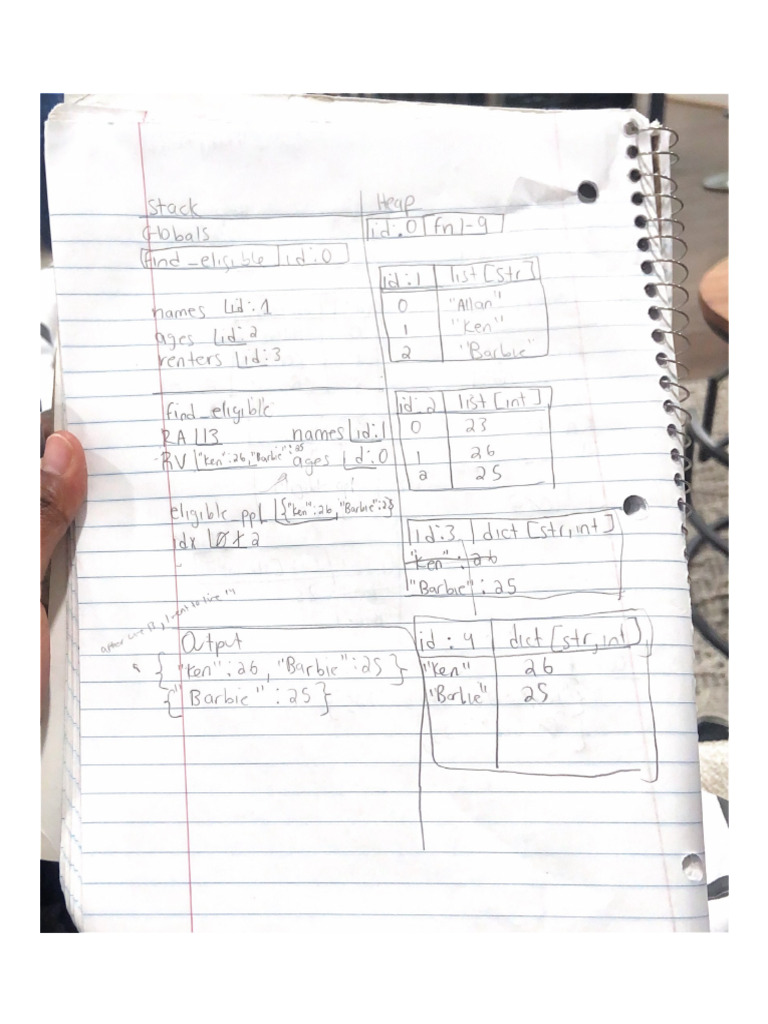 Stack
Globals
find_eligible id:0
names id:1
ages id:2
renters id:3
find_eligible
RA 13 names id:1
RV "Ken":26, "Barbie":25 ages id:0
eligible_ppl {"Ken":26, "Barbie":25}
idx 0 1 2
Heap
id:0 fn 1-9
id:1 list[str]
0 "Allan"
1 "Ken"
2 "Barbie"
id:2 list[int]
0 23
1 26
2 25
id:3 dict[str,int]
"Ken": 26
"Barbie": 25
id:4 dict[str,int]
"Ken" 26
"Barbie" 25
after line 13, I went to line 14
Output
{"Ken":26, "Barbie":25}
{"Barbie":25}